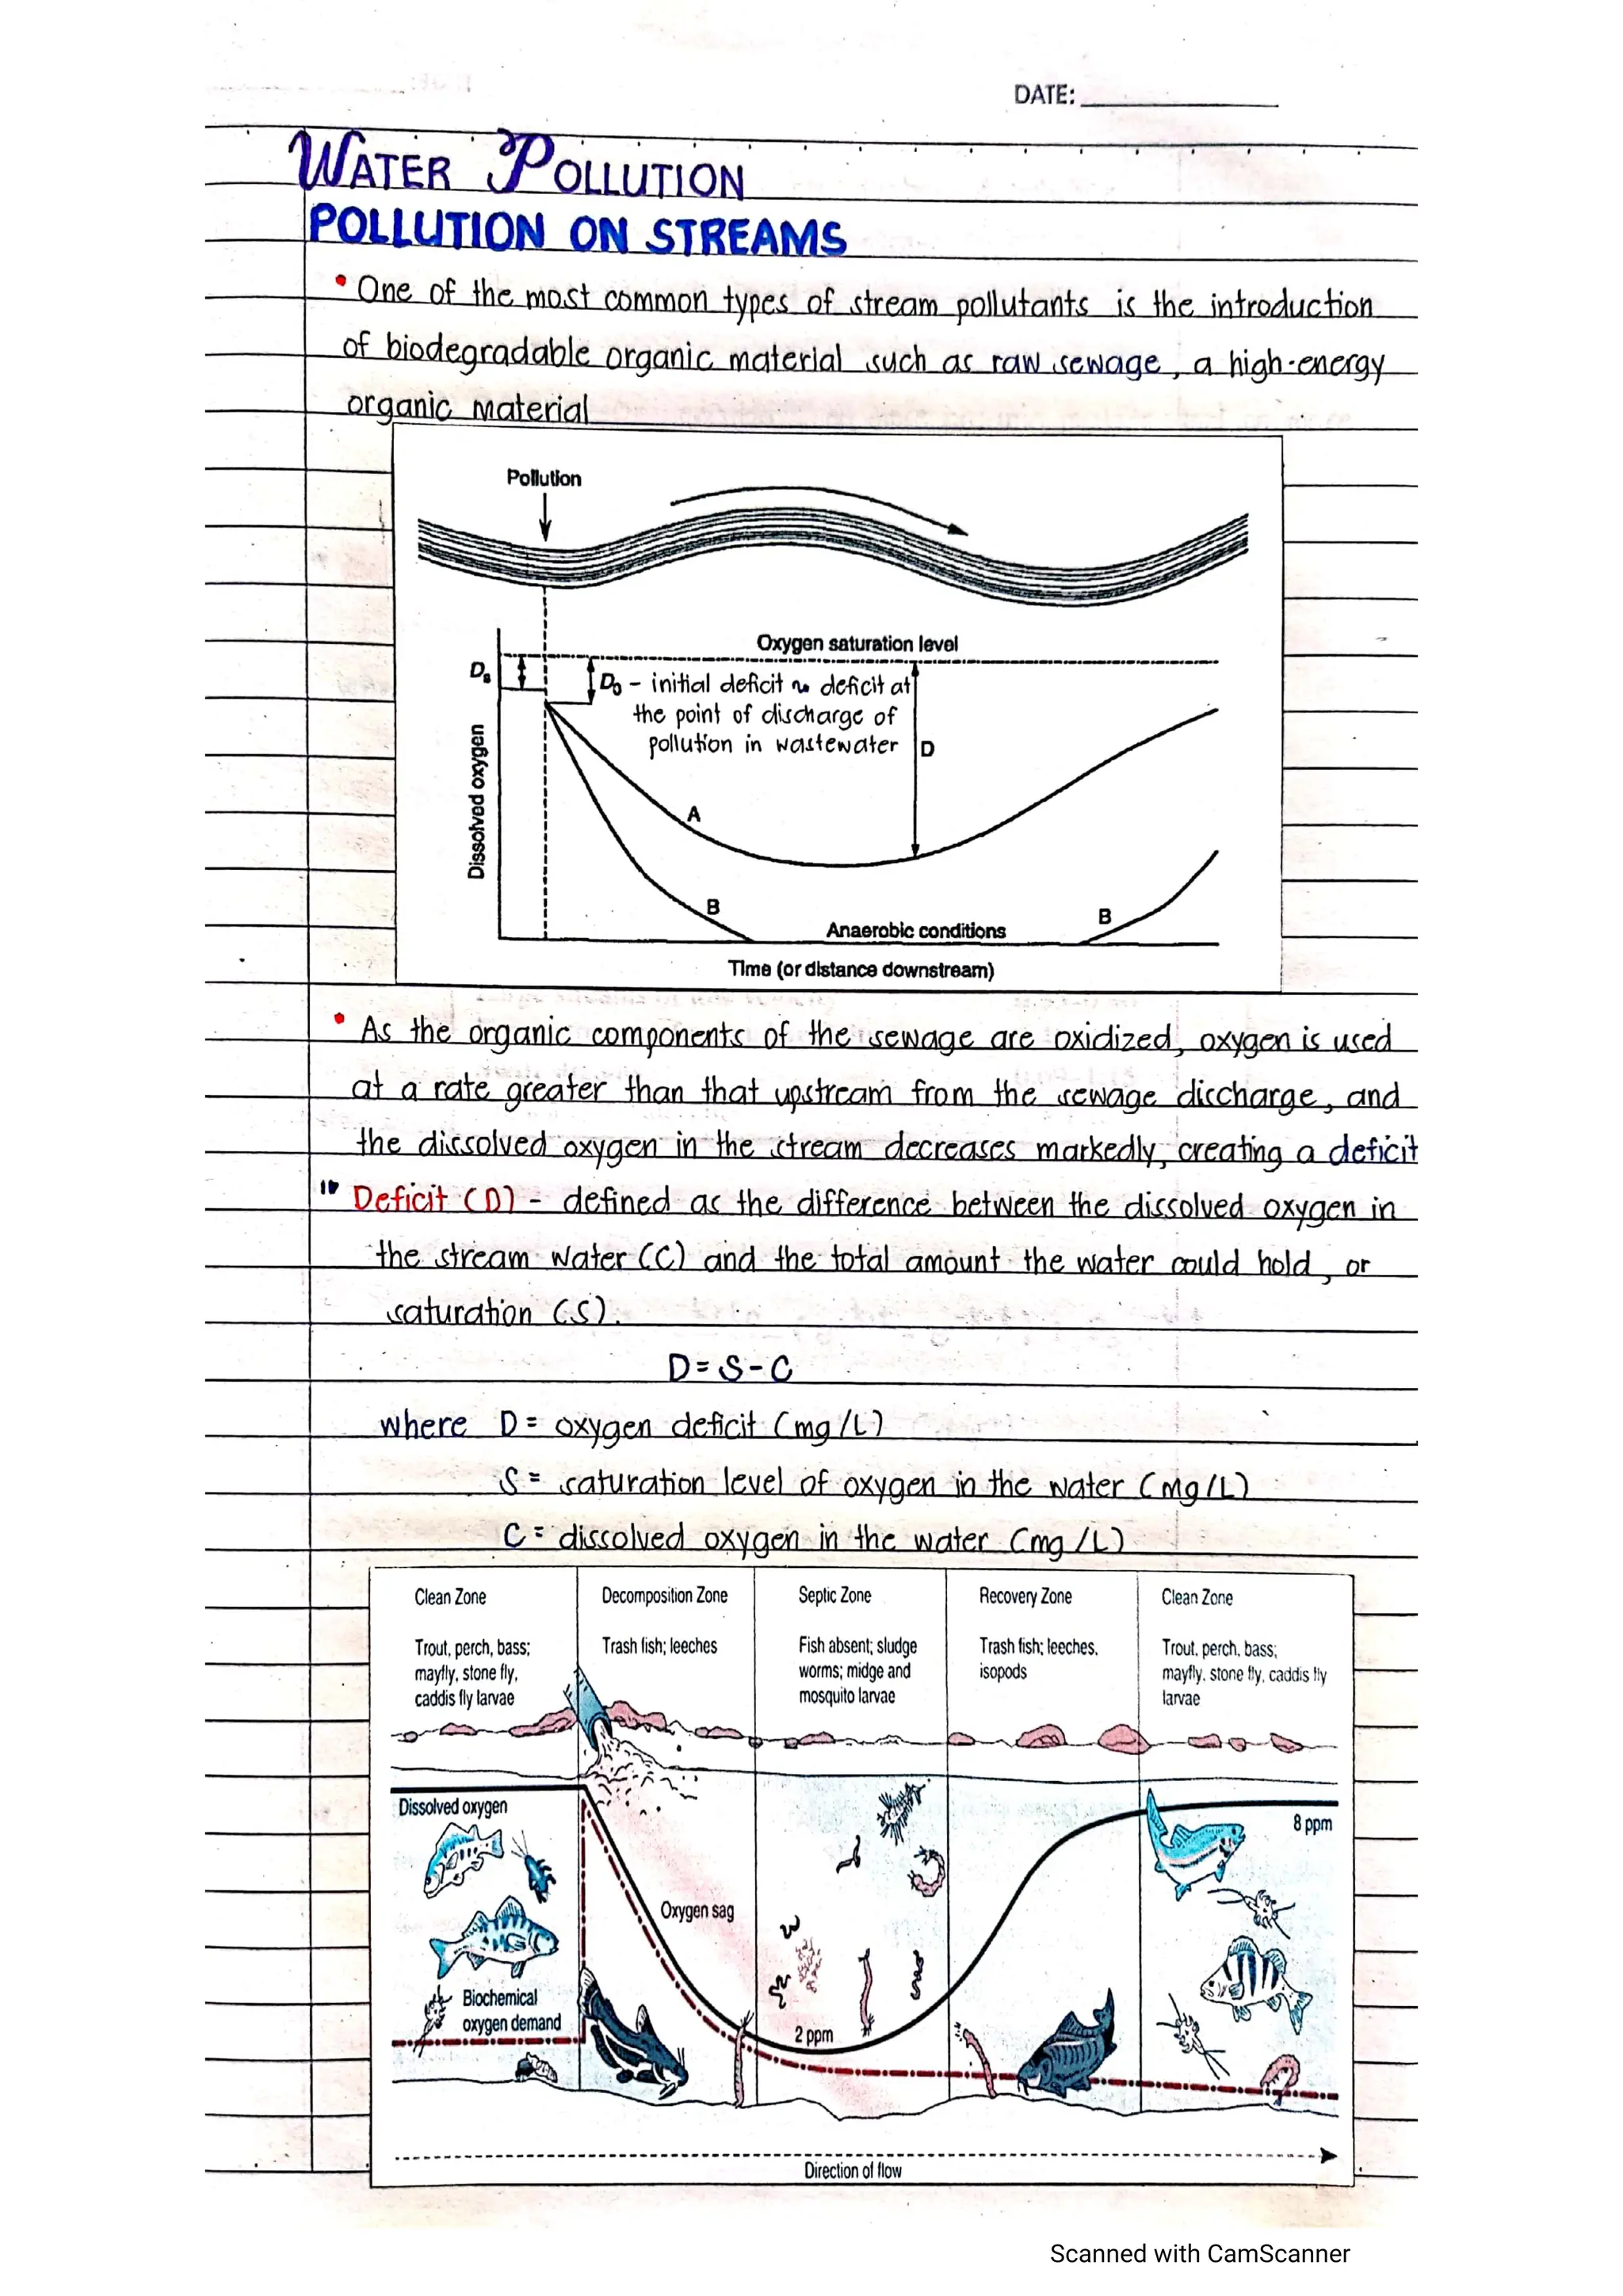 DATE:
WATER POLLUTION
POLLUTION ON STREAMS
• One of the most common types of stream pollutants is the introduction
of biodegradable organic material such as raw sewage, a high-energy
organic material
Pollution
Oxygen saturation level
Da
D₀ - initial deficit ~ deficit at
the point of discharge of
pollution in wastewater
D
Dissolved oxygen
A
B
B
Anaerobic conditions
Time (or distance downstream)
• As the organic components of the sewage are oxidized, oxygen is used
at a rate greater than that upstream from the sewage discharge, and
the dissolved oxygen in the stream decreases markedly, creating a deficit
Deficit (D) - defined as the difference between the dissolved oxygen in
the stream water (C) and the total amount the water could hold, or
saturation (S).
D = S - C
where D = oxygen deficit (mg/L)
S = saturation level of oxygen in the water (mg/L)
C = dissolved oxygen in the water (mg/L)
Clean Zone
Trout, perch, bass;
mayfly, stone fly,
caddis fly larvae
Decomposition Zone
Trash fish; leeches
Septic Zone
Fish absent; sludge
worms; midge and
mosquito larvae
Recovery Zone
Trash fish; leeches,
isopods
Clean Zone
Trout, perch, bass;
mayfly, stone fly, caddis fly
larvae
Dissolved oxygen
8 ppm
Oxygen sag
Biochemical
oxygen demand
2 ppm
Direction of flow
Scanned with CamScanner